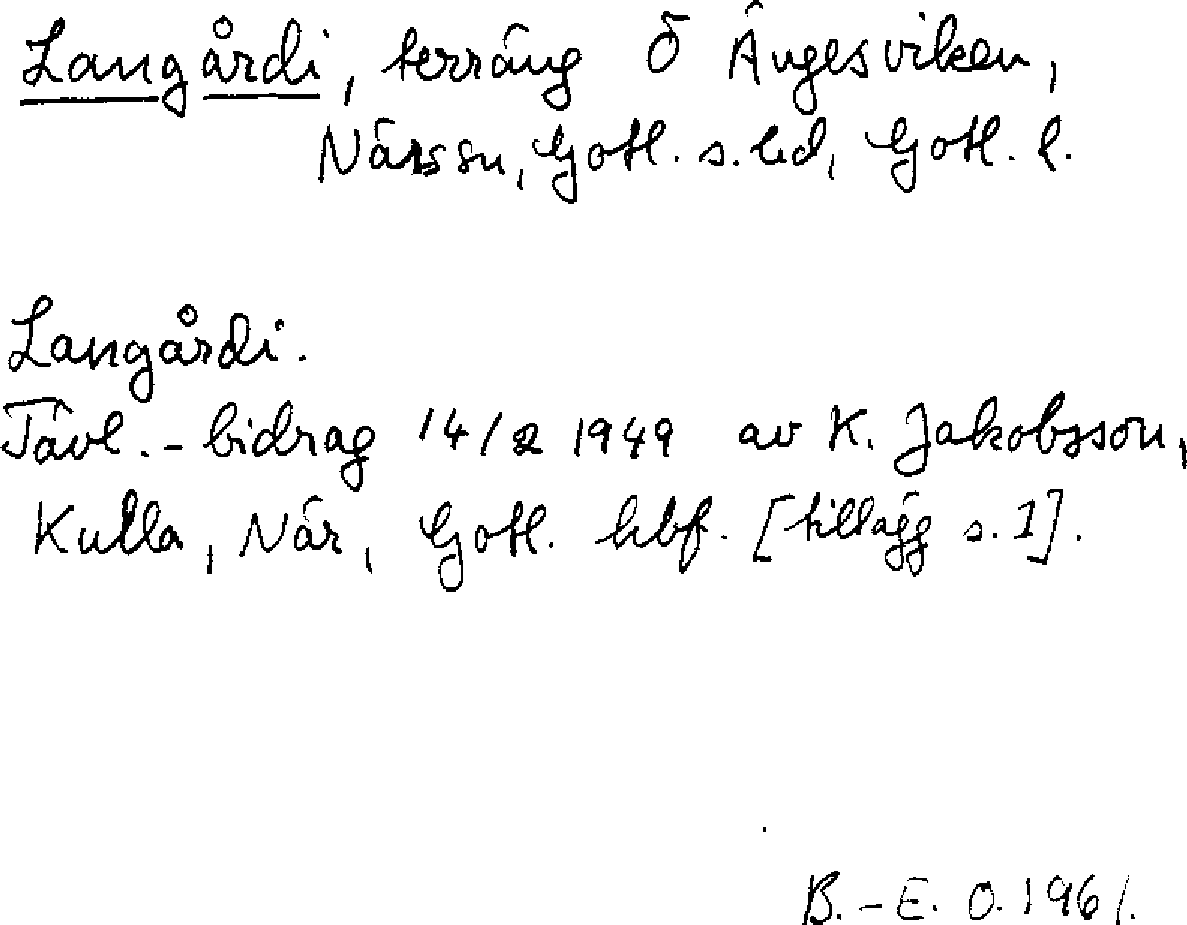 Langårdi, terräng Ö Ängesviken,
När sn, Gotl. s. hd, Gotl. l.
Langårdi.
Tävl.-bidrag 14/2 1949 av K. Jakobsson,
Kulla, När, Gotl. hbf. [tillägg s. 1].
B.-E. O. 1961.